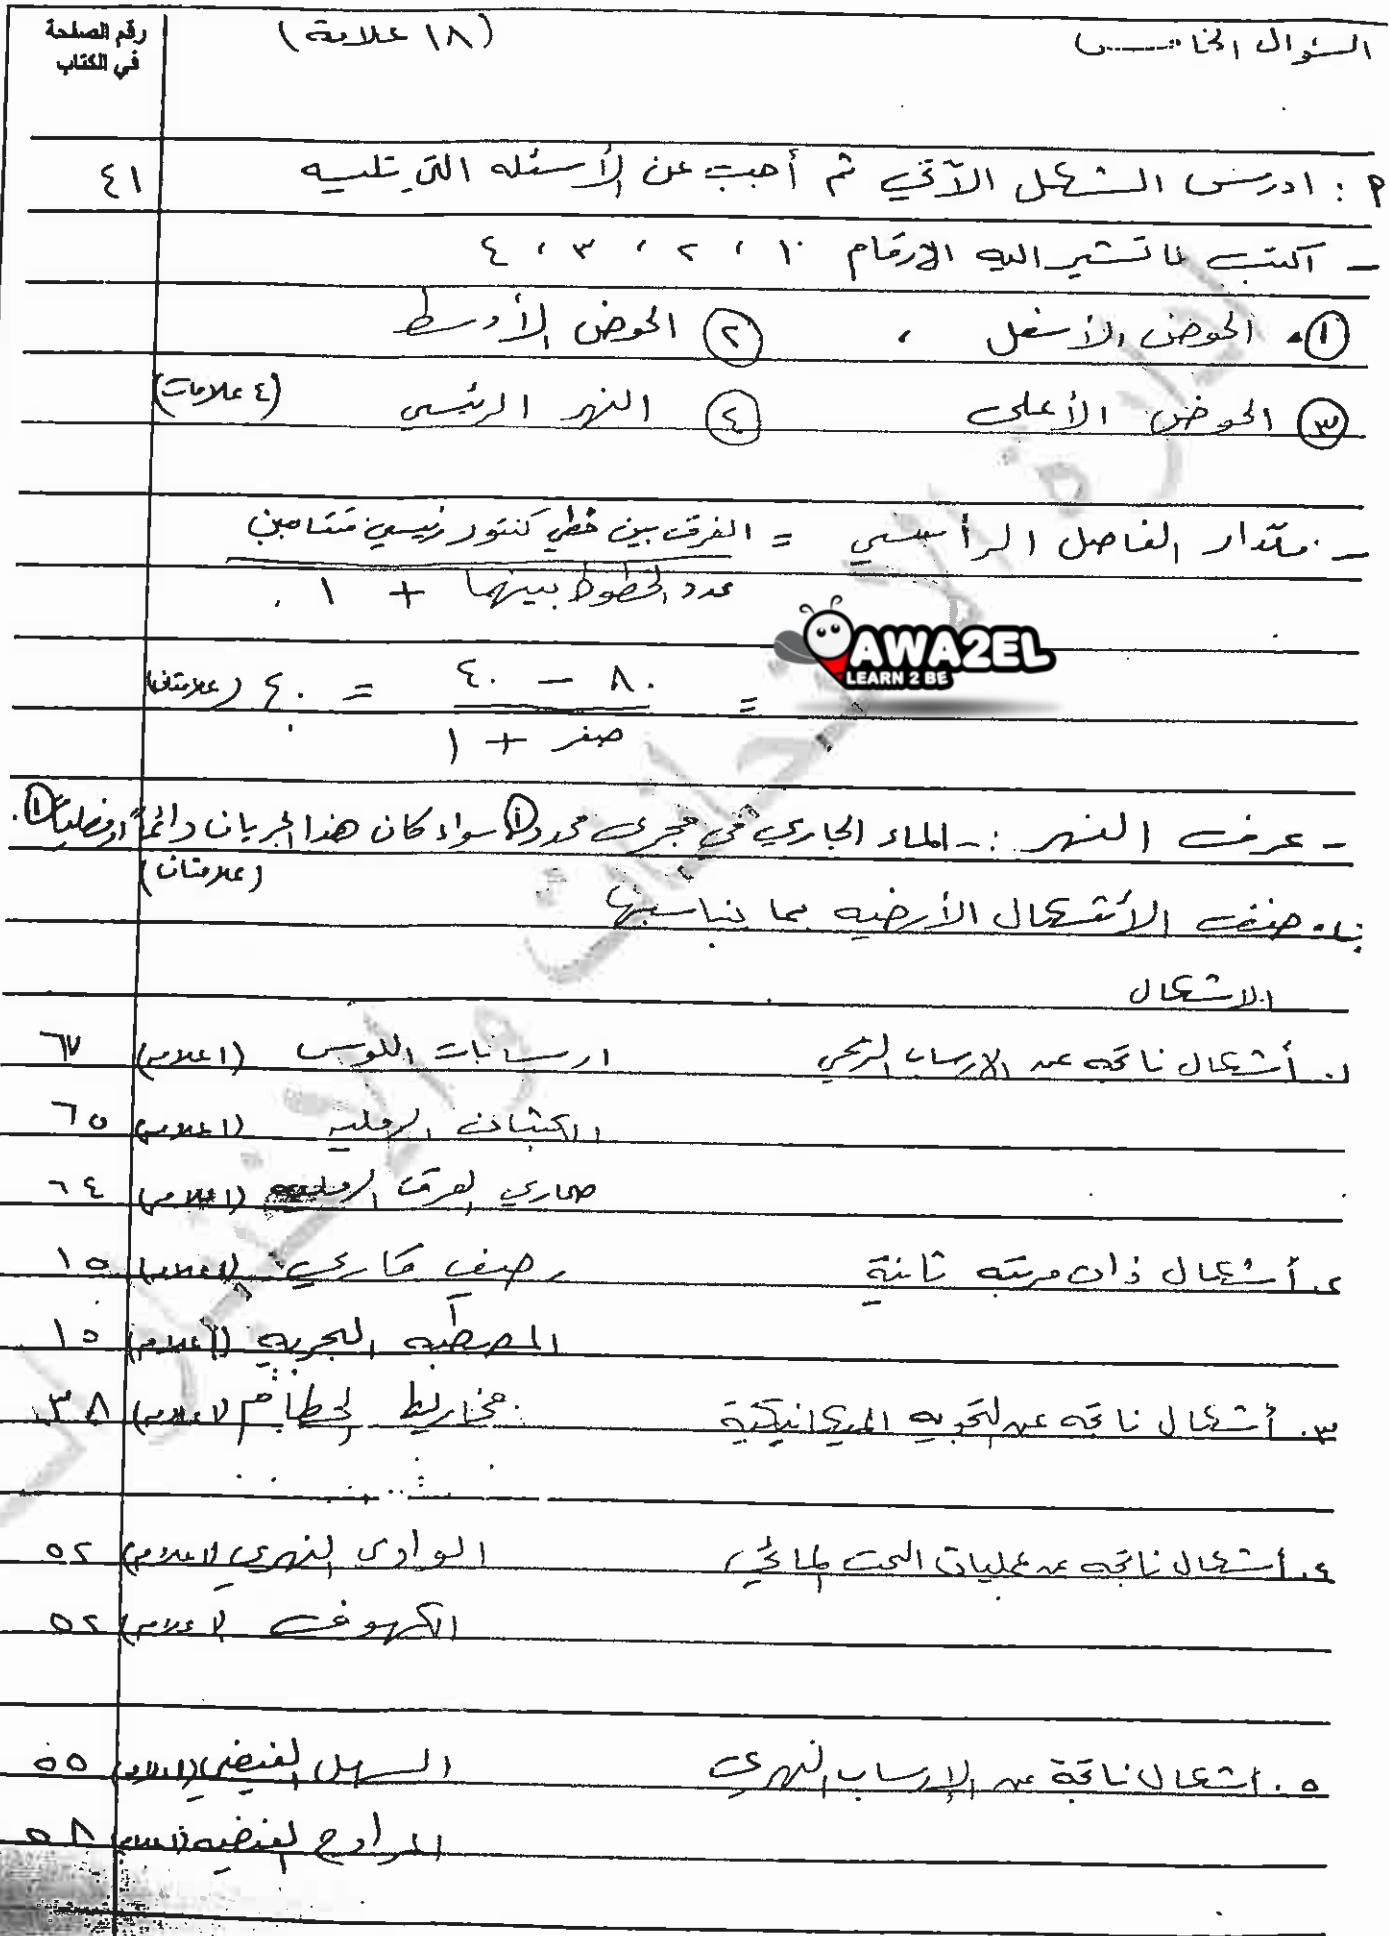 السؤال الخامس (١٨ علامة) رقم الصفحة في الكتاب
٩ : ادرس الشكل الآتي ثم أجب عن الأسئله التي تليه ٤١
- اكتب ما تشير اليه الارقام ١ ، ٢ ، ٣ ، ٤
① الحوض الأسفل ، ② الحوض الأوسط
③ الحوض الأعلى ④ النهر الرئيسي (٤ علامات)
- مقدار الفاصل الرأسي = الفرق بين خطي كنتور رئيسي متتابعين
عدد الخطوط بينهما + ١
AWA2EL
LEARN 2 BE
= ٨٠ - ٤٠ = ٤٠ (علامتان)
صفر + ١
- عرف النهر :- الماء الجاري في مجرى محدد ① سواء كان هذا الجريان دائماً او فصلياً ①
(علامتان)
ب. صنف الأشكال الأرضيه بما يناسبها
الاشكال
١. أشكال ناتجه عن الارساب الريحي ارسابات اللوس (١ علامه) ٦٧
الكثبان الرمليه (١ علامه) ٦٥
صحاري العرق الرمليه (١ علامه) ٦٤
٢. أشكال ذات مرتبه ثانية رصيف قاري (١ علامه) ١٥
المصطبه البحريه (١ علامه) ١٥
٣. أشكال ناتجه عن التجويه الميكانيكية مخاريط الحطام (١ علامه) ٣٨
٤. أشكال ناتجه عن عمليات الحت المائي الوادي النهري (١ علامه) ٥٢
الكهوف (١ علامه) ٥٢
٥. اشكال ناتجة عن الإرساب النهري السهل الفيضي (١ علامه) ٥٥
المراوح الفيضيه (١ علامه) ٥٨